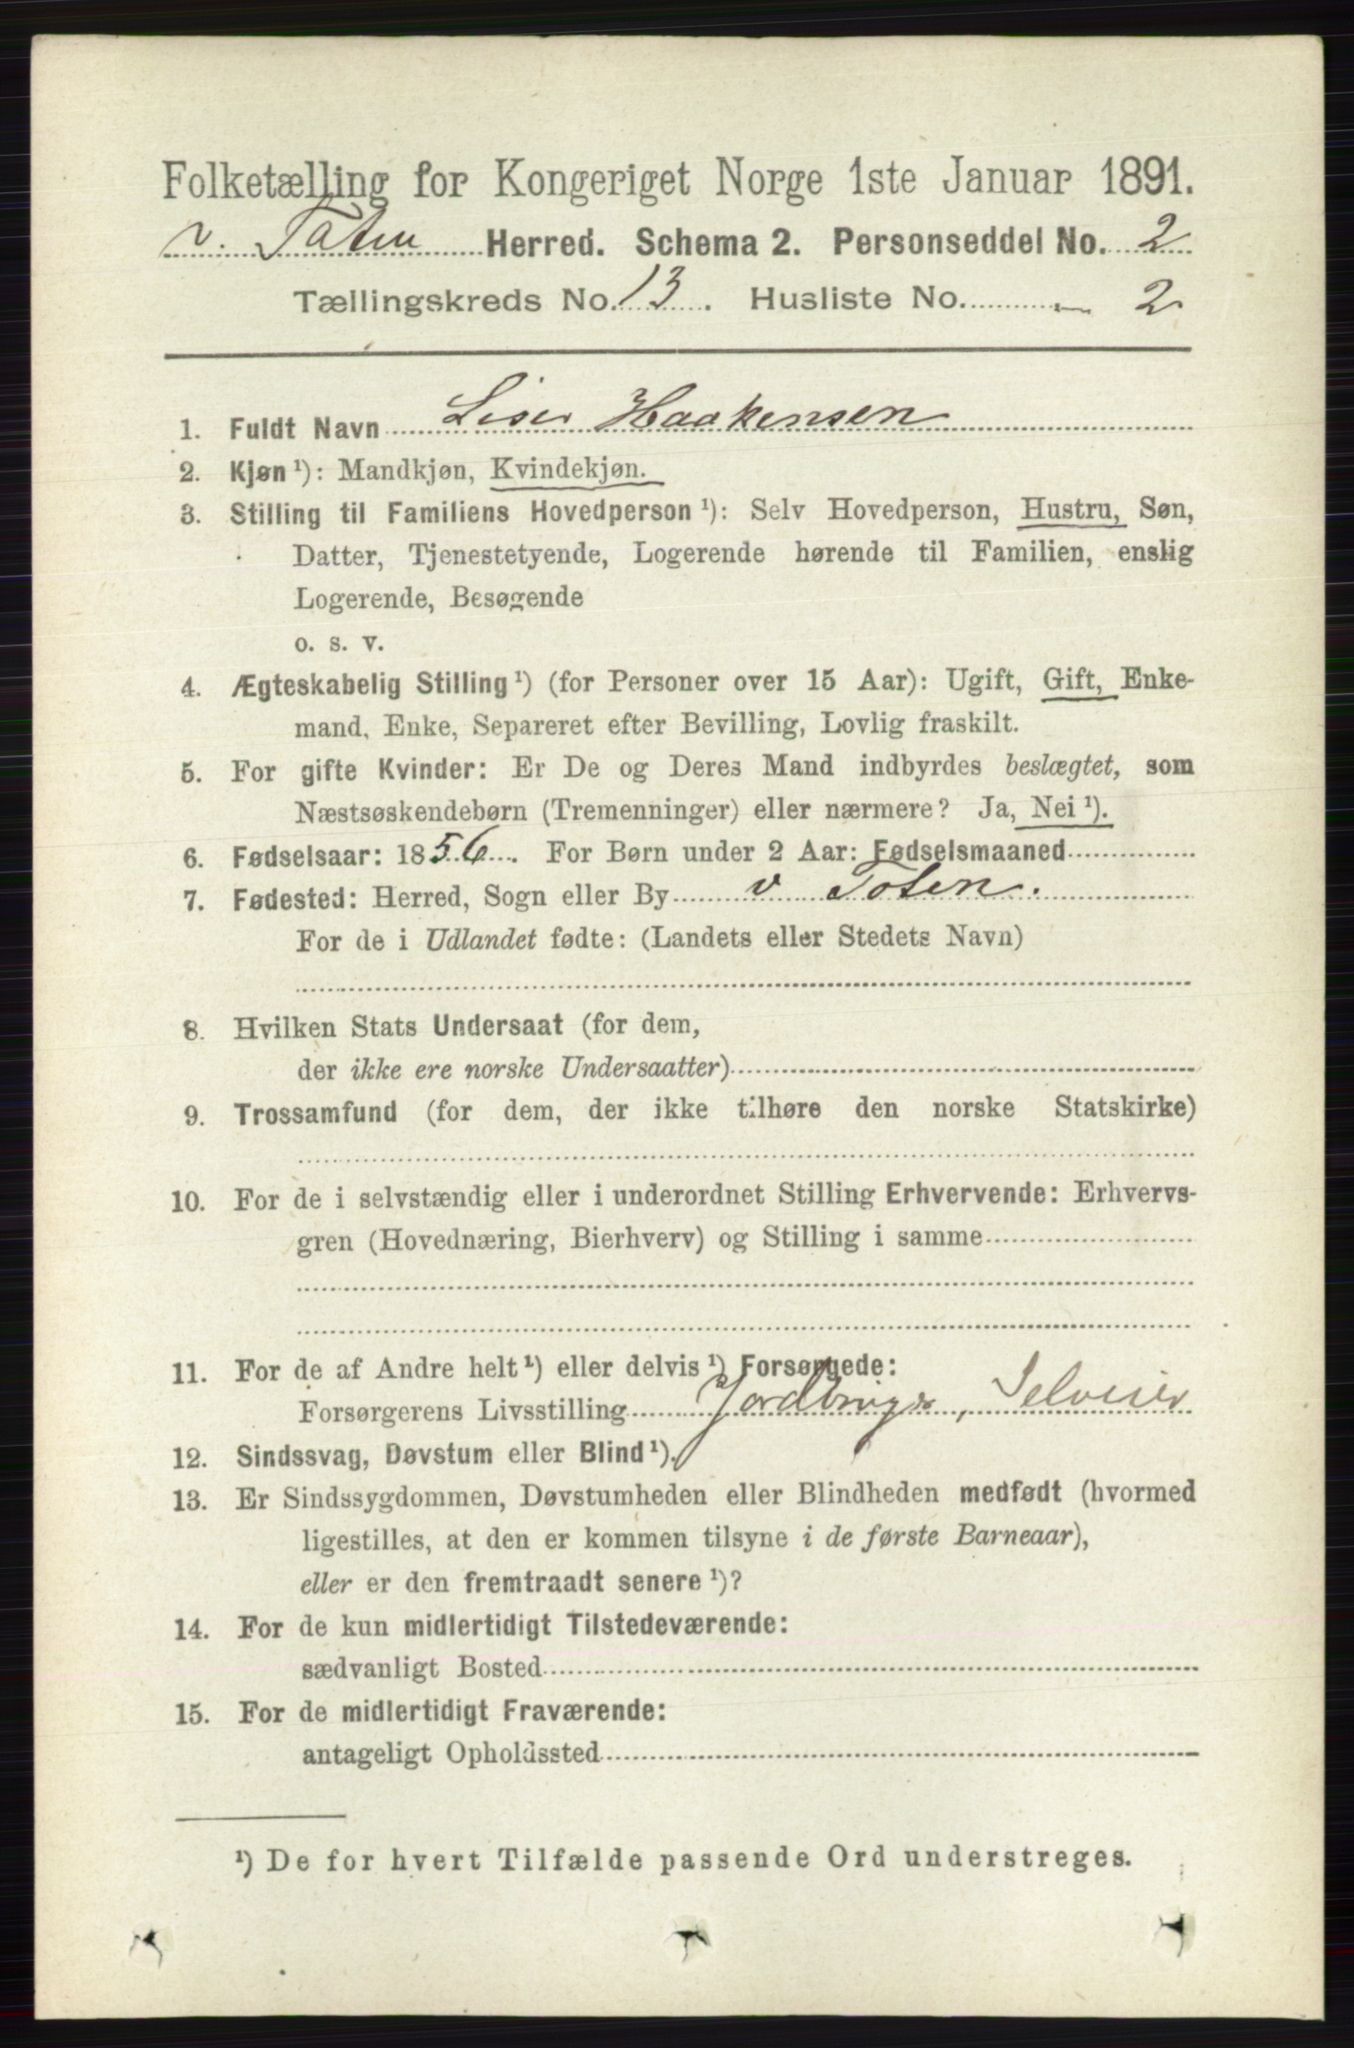 Folketælling for Kongeriget Norge 1ste Januar 1891.
v. Toten Herred. Schema 2. Personseddel No. 2
Tællingskreds No. 13. Husliste No. 2
1. Fuldt Navn Lise Haakensen
2. Kjøn¹): Mandkjøn, Kvindekjøn.
3. Stilling til Familiens Hovedperson¹): Selv Hovedperson, Hustru, Søn,
Datter, Tjenestetyende, Logerende hørende til Familien, enslig
Logerende, Besøgende
o. s. v.
4. Ægteskabelig Stilling¹) (for Personer over 15 Aar): Ugift, Gift, Enke-
mand, Enke, Separeret efter Bevilling, Lovlig fraskilt.
5. For gifte Kvinder: Er De og Deres Mand indbyrdes beslægtet, som
Næstsøskendebørn (Tremenninger) eller nærmere? Ja, Nei¹).
6. Fødselsaar: 1856. For Børn under 2 Aar: Fødselsmaaned
7. Fødested: Herred, Sogn eller By v Toten.
For de i Udlandet fødte: (Landets eller Stedets Navn)
8. Hvilken Stats Undersaat (for dem,
der ikke ere norske Undersaatter)
9. Trossamfund (for dem, der ikke tilhøre den norske Statskirke)
10. For de i selvstændig eller i underordnet Stilling Erhvervende: Erhvervs-
gren (Hovednæring, Bierhverv) og Stilling i samme
11. For de af Andre helt¹) eller delvis¹) Forsørgede:
Forsørgerens Livsstilling Jordbruger, Selveier
12. Sindssvag, Døvstum eller Blind¹).
13. Er Sindssygdommen, Døvstumheden eller Blindheden medfødt (hvormed
ligestilles, at den er kommen tilsyne i de første Barneaar),
eller er den fremtraadt senere¹)?
14. For de kun midlertidigt Tilstedeværende:
sædvanligt Bosted
15. For de midlertidigt Fraværende:
antageligt Opholdssted
¹) De for hvert Tilfælde passende Ord understreges.